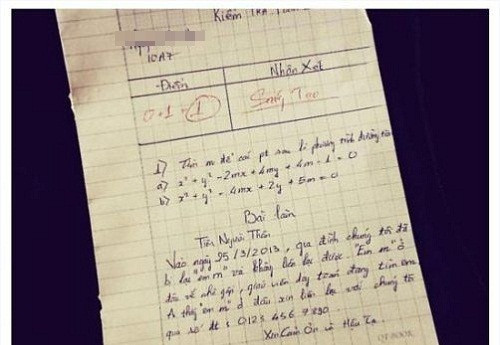 Kiểm
10A7
Điểm
Nhận Xét
0+1=1
Sáng Tạo
1) Tìm m để các pt sau là phương trình đường tròn
a) x² + y² - 2mx + 4my + 4m - 1 = 0
b) x² + y² - 4mx + 2y + 5m = 0
Bài làm
Tìm Người Thân
Vào ngày 25/3/2013, gia đình chúng tôi đã
bị lạc "em m" và không liên lạc được. "Em m" ở
đâu về nhà gấp, giáo viên dạy toán đang tìm em
Ai thấy em "m" ở đâu xin liên lạc với chúng tôi
qua số đt: 0123 456 7890.
Xin Cảm Ơn và Hậu Tạ